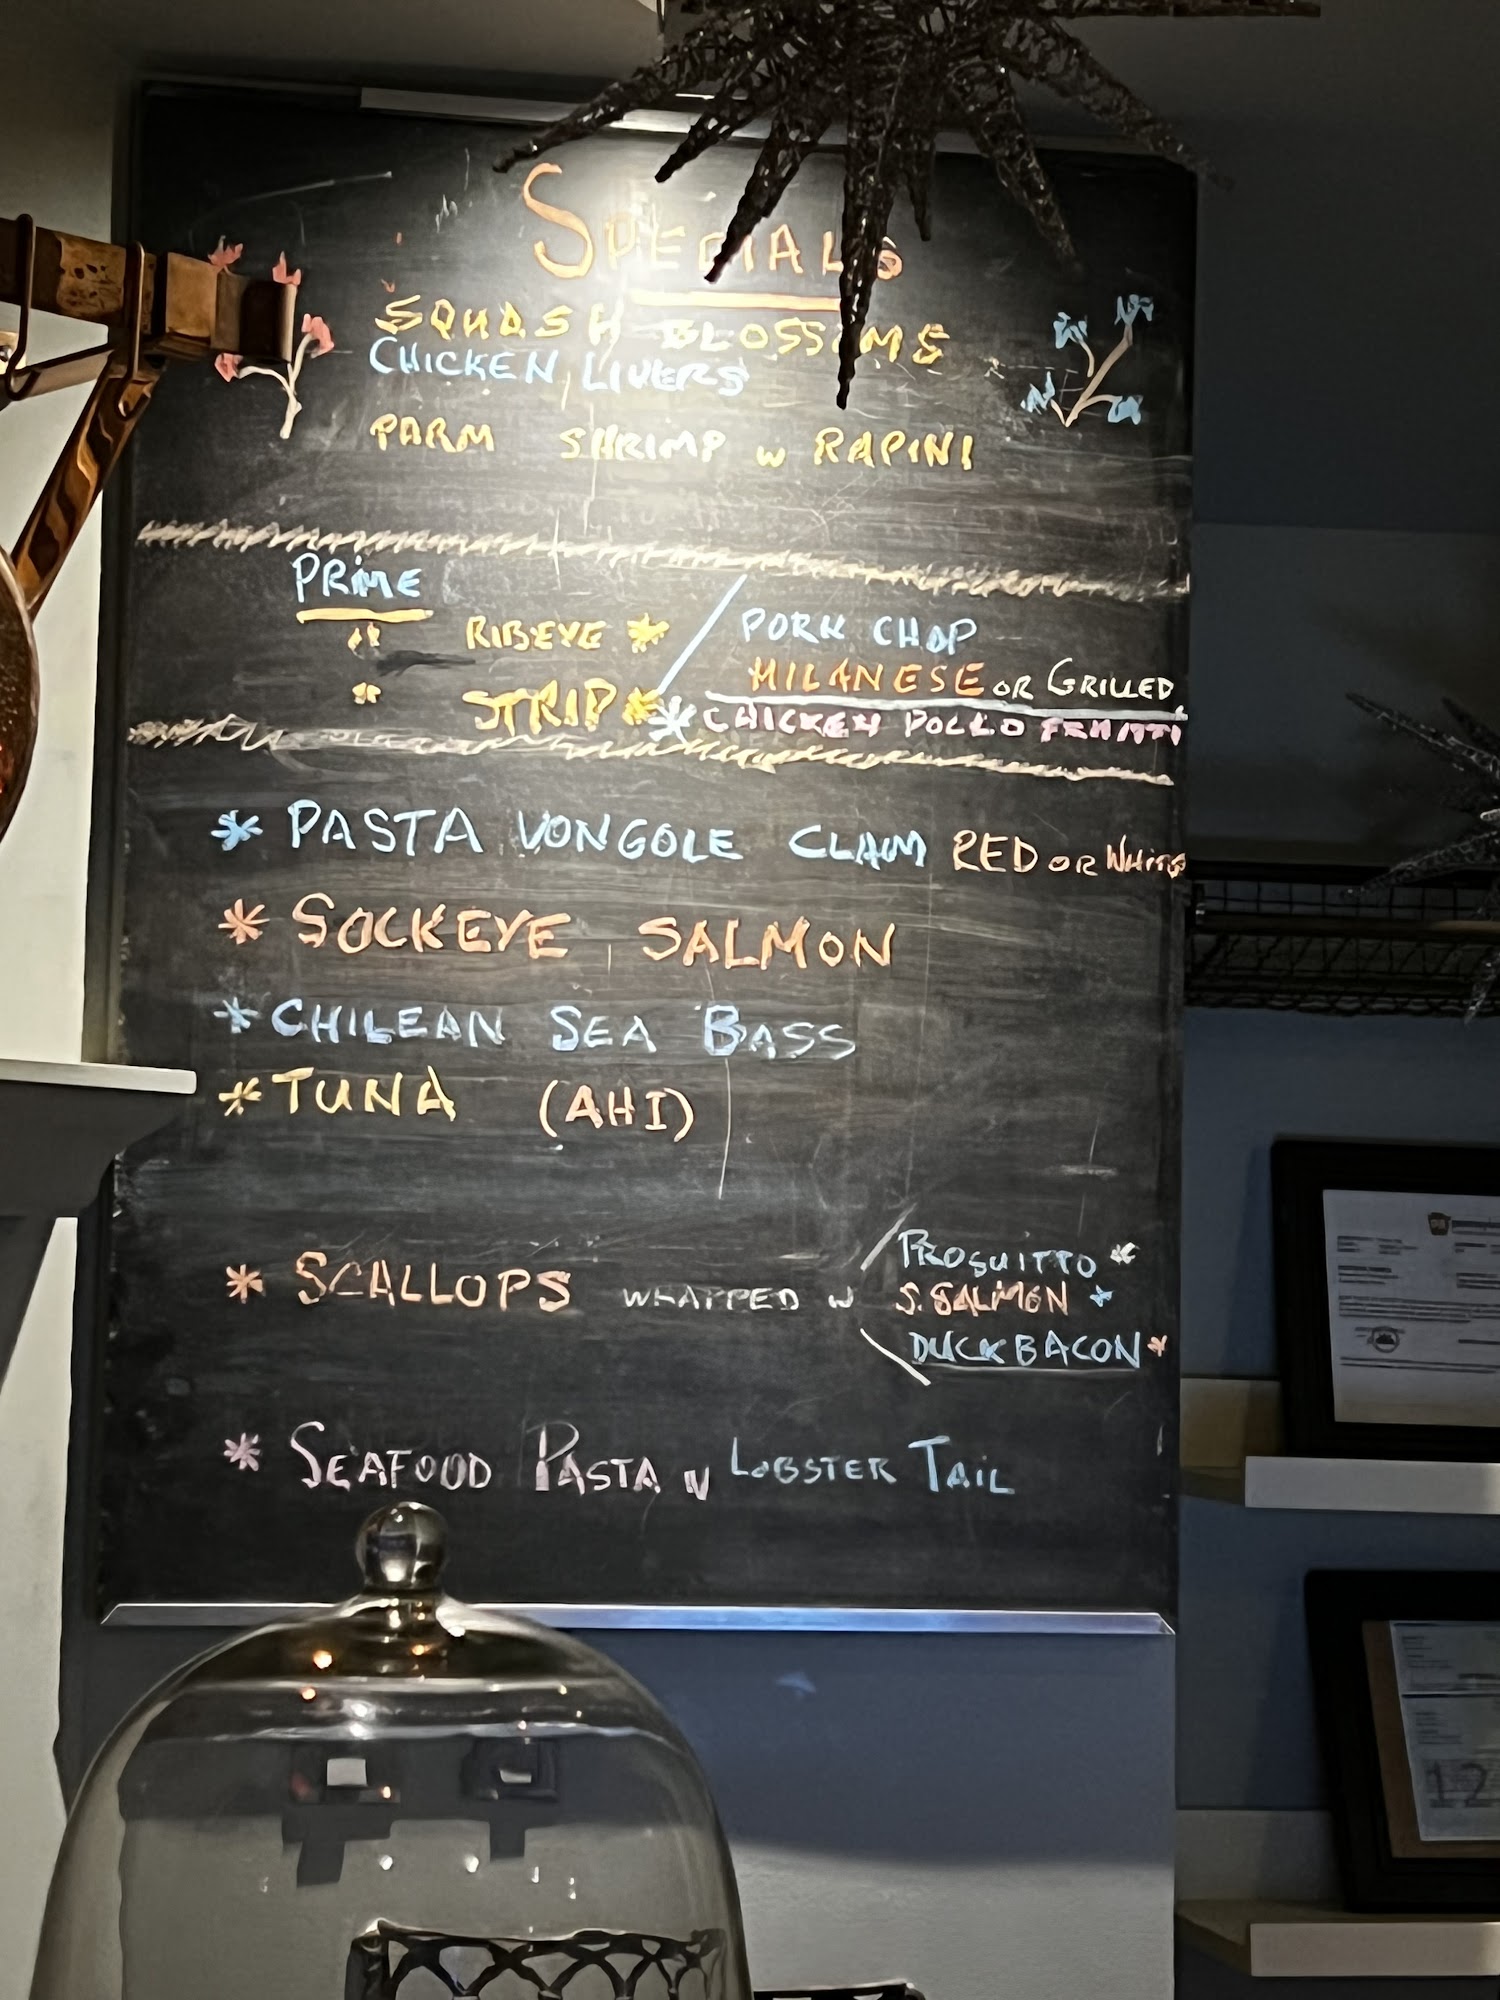 SPECIALS
SQUASH BLOSSOMS
CHICKEN LIVERS
PARM SHRIMP W RAPINI
PRIME
" RIBEYE *
" STRIP *
PORK CHOP
MILANESE OR GRILLED
* CHICKEN POLLO
* PASTA VONGOLE CLAM RED OR WHITE
* SOCKEYE SALMON
* CHILEAN SEA BASS
* TUNA (AHI)
* SCALLOPS WRAPPED W
PROSUITTO *
S. SALMON *
DUCK BACON *
* SEAFOOD PASTA W LOBSTER TAIL
12